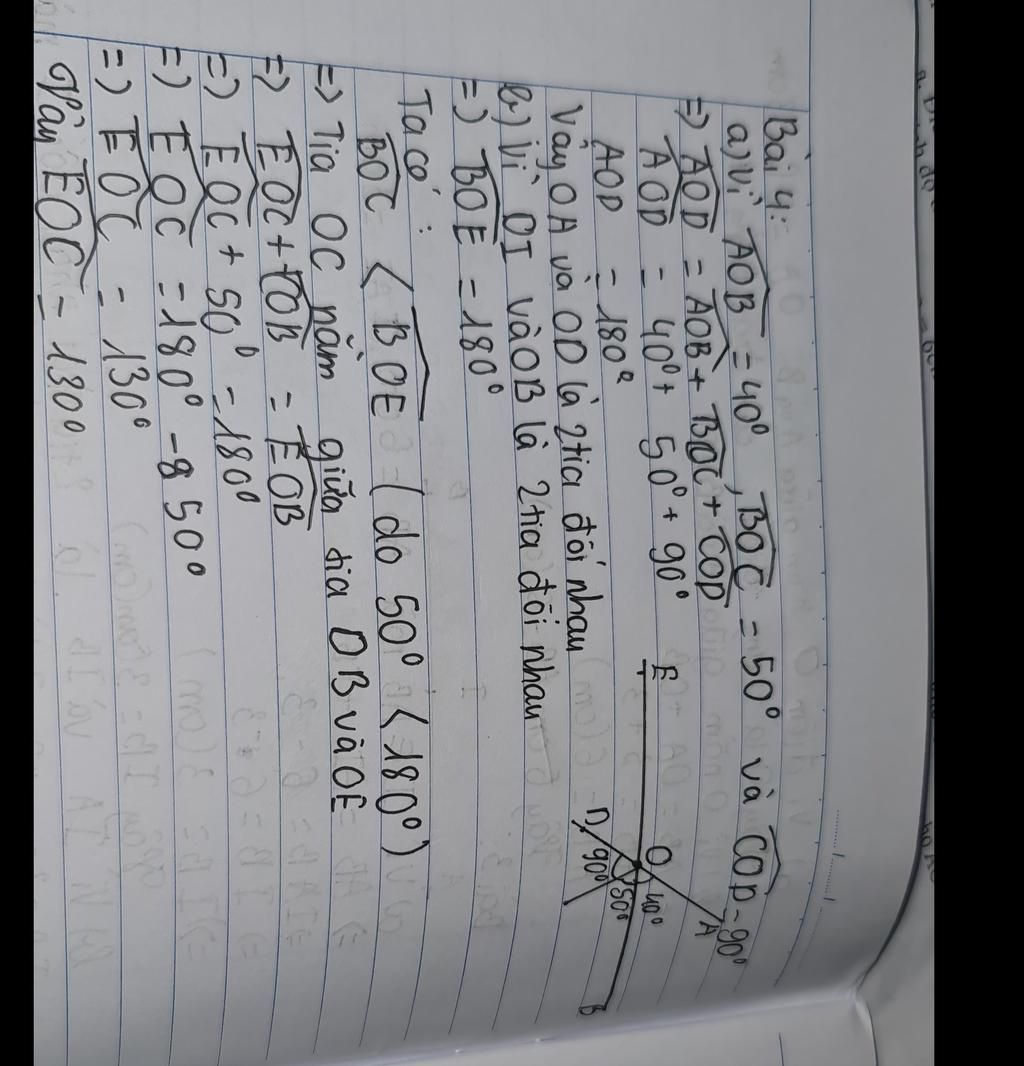 Bài 4:
a) Vì AOB = 40°, BOC = 50° và COD = 90°
=) AOD = AOB + BOC + COD
AOD = 40° + 50° + 90°
AOD = 180°
Vậy OA và OD là 2 tia đối nhau
b) Vì OI và OB là 2 tia đối nhau
=) BOE = 180°
Ta có:
BOC < BOE (do 50° < 180°)
=) Tia OC nằm giữa tia OB và OE
=) EOC + COB = EOB
=) EOC + 50° = 180°
=) EOC = 180° - 8 50°
=) EOC = 130°
Vậy EOC = 130°
E
O
A
40°
50°
90°
D
B